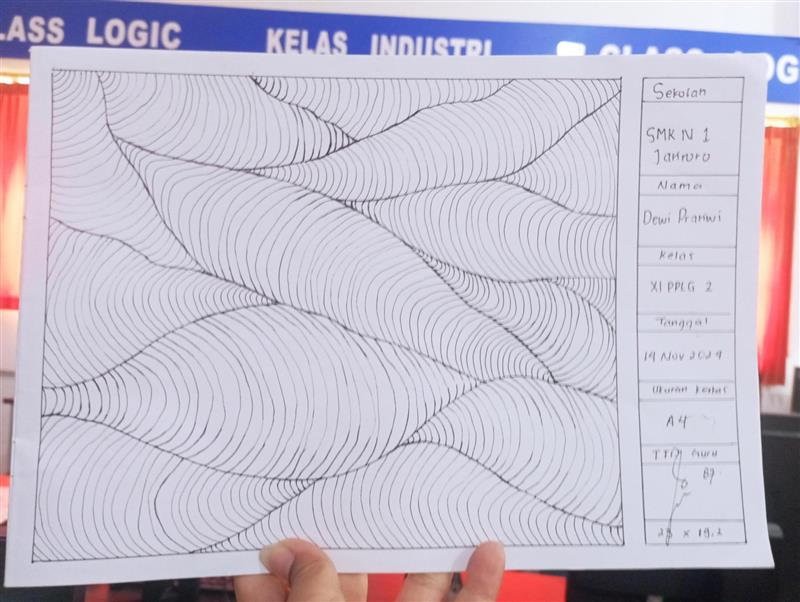 LASS LOGIC
KELAS INDUSTRI
CLASS LOG
Sekolah
SMK N 1
Nama
Dewi
Kelas
XI PPLG 2
Tanggal
19 Nov 2024
Ukuran Kertas
A4
TTD Guru
87
28 x 19,2